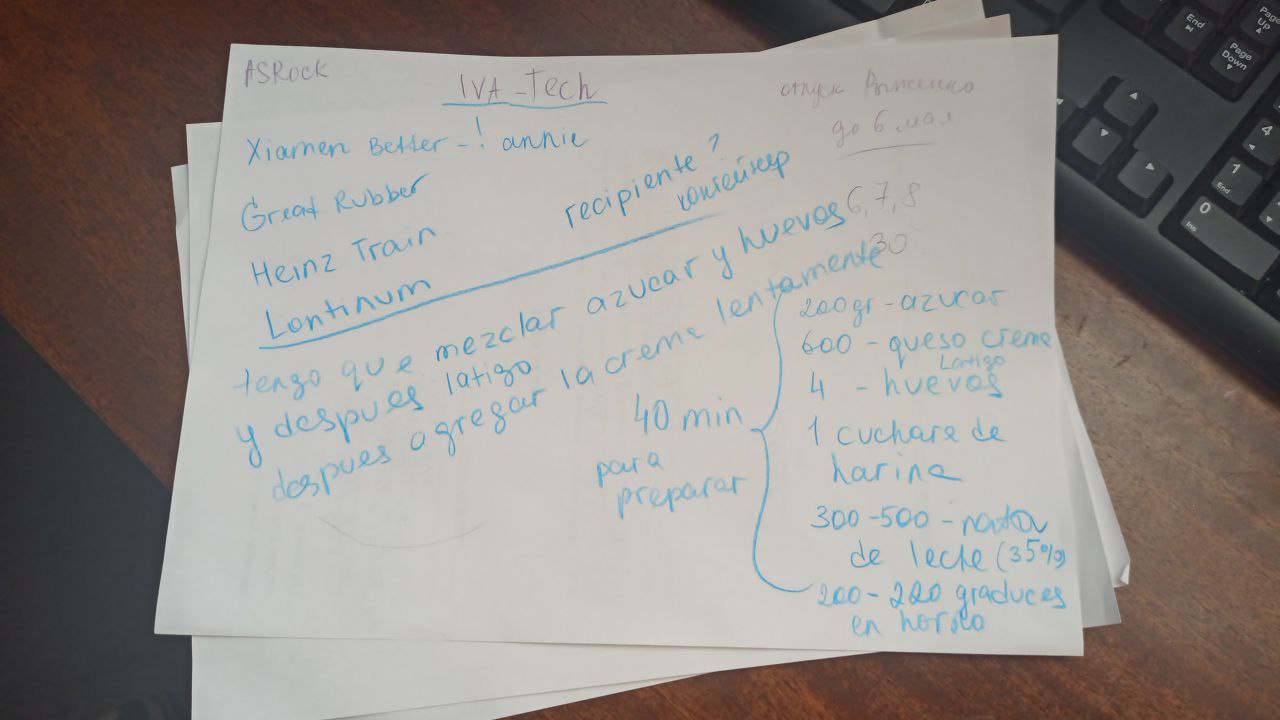 ASRock
IVA-Tech
отпуск
до 6 мая
Xiamen Better - ! annie
Great Rubber
Heinz Train
Lontinum
recipiente ?
контейнер
6, 7, 8
30
tengo que mezclar azucar y huevos
y despues latigo
despues agregar la creme lentamente
40 min
para
preparar
200gr - azucar
600 - queso creme
Lartigo
4 - huevos
1 cuchare de
harina
300-500 - nata
de leche (35%)
200 - 220 graduces
en horno